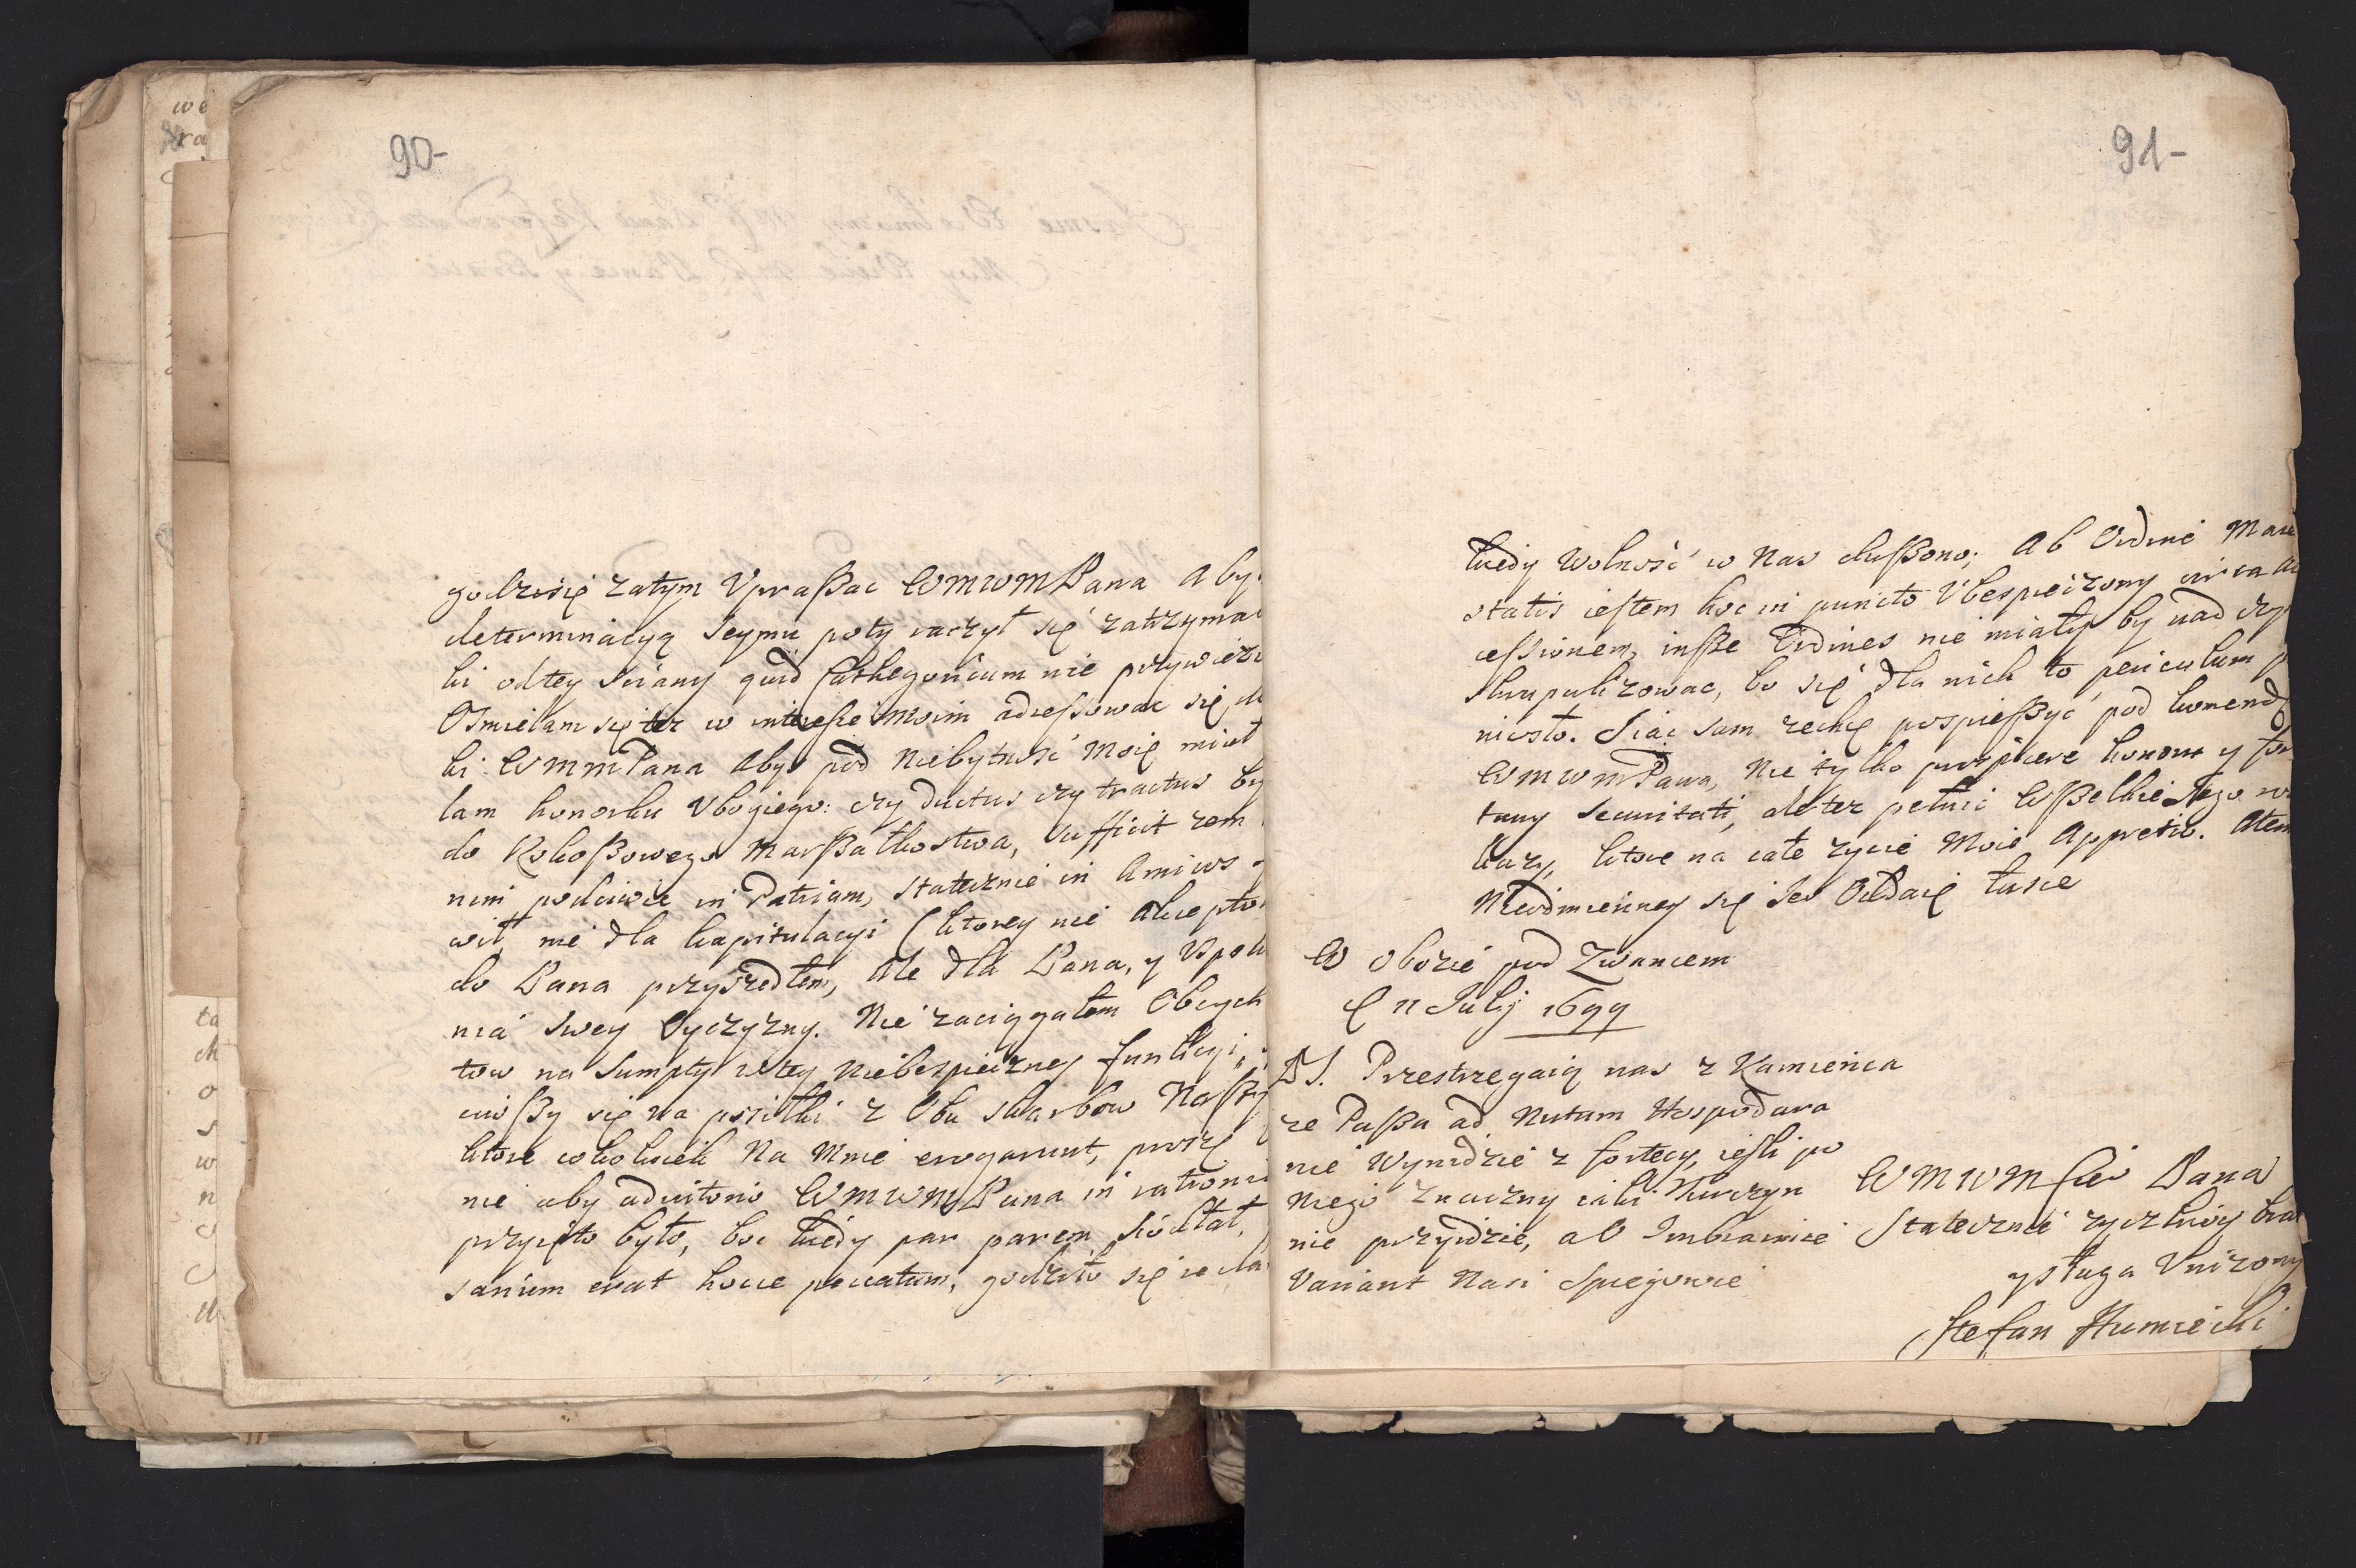 90-
godzisię zatym Upraßac WMWMPana Aby
determinacyą Seymu poty raczył się zatrzymać
ki odtey sciany quid Cathegoricum nie przywiez
Osmielam się też w interesie Moim adressowac się do
ki WMMPana Abyś pod Niebytność Moię miał
łam honorku Ubogiego: czy ductus czy tractus by
do Rokoßowego Marßałkostwa, sufficit żem
nim podciwie in Patriam, statecznie in Amicos
wił, nie dla kapitulacyi (ktorey nie akcepto
do Pana przyszedłem, Ale dla Pana, y Uspok
nia swey Oyczyzny. Nie zaciągałem Obcych
tow na Sumpty w tey Niebezpieczney funkcyi,
ciwßy się na posiłki z Obu skarbow Naßy
ktore cokolwiek Na Mnie erogarunt, proszę
nie aby adiutorio WMWMPana in rationi
przyięto było, boc kiedy par parem siodłał,
sanium erat hocce peccatum, godziło się
91-
kiedy Wolność w Nas dußono; Ab Ordine Maie
statis iestem hoc in puncto Ubespieczony circa ac
cessionem, inße Ordines nie miały by nad czym
skrupulizowac, bo się dla nich to periculum
niosło. Siać sam zechcę pospießyć pod komendę
WMWMPana, Nie tylko prospicere honoru y for
tuny securitati, ale też pełnić Wßelkie Jego roz
kazy, ktore na całe zycie Moie Appretio. Atem
Nieodmienney się Jes Oddaię łasce
W obozie pod Zwancem
d 11 Julij 1699
PS. Przestrzegaią nas z Kamieńca
ze Paßa ad Nutum Hospodara
nie Wynidzie z fortecy, iesli po
Niego Znaczny iaki Turczyn
nie przyidzie, ab Imbraimie
Variant Nasi Spiegowie
WMWMsci Pana
Statecznie zyczliwy brat
y sługa Unizony
Stefan Humiecki